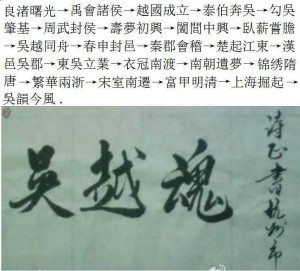 良渚曙光→禹會諸侯→越國成立→泰伯奔吳→勾吳
肇基→周武封侯→壽夢初興→闔閭中興→臥薪嘗膽
→吳越同舟→春申封邑→秦郡會稽→楚起江東→漢
邑吳郡→東吳立業→衣冠南渡→南朝遺夢→锦绣隋
唐→繁華兩浙→宋室南遷→富甲明清→上海掘起→
吳韻今風．
吳越魂
诗正書杭州市